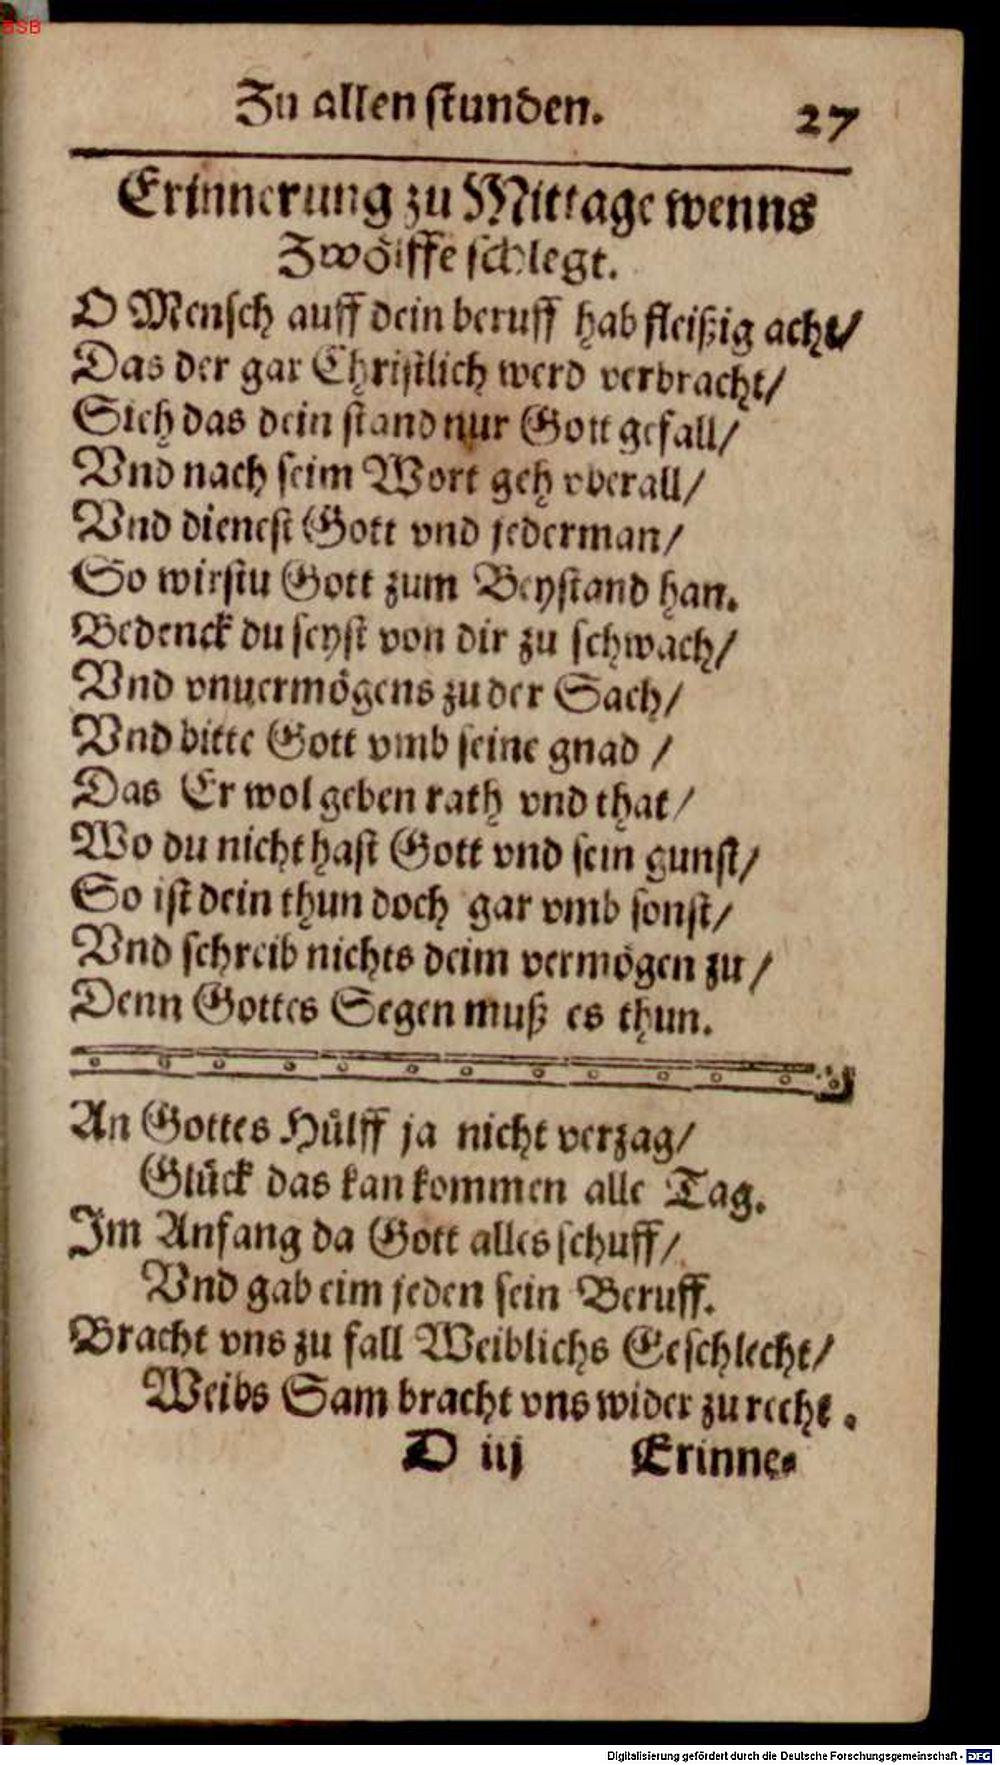 BSB
Zu allen stunden. 27
Erinnerung zu Mittage wenns
Zwölffe schlegt.
O Mensch auff dein beruff hab fleißig acht/
Das der gar Christlich werd verbracht/
Sieh das dein stand nur Gott gefall/
Vnd nach seim Wort geh vberall/
Vnd dienest Gott vnd jederman/
So wirstu Gott zum Beystand han.
Bedenck du seyst von dir zu schwach/
Vnd vnuermögens zu der Sach/
Vnd bitte Gott vmb seine gnad /
Das Er wol geben rath vnd that/
Wo du nicht hast Gott vnd sein gunst/
So ist dein thun doch gar vmb sonst/
Vnd schreib nichts deim vermögen zu/
Denn Gottes Segen muß es thun.
An Gottes Hülff ja nicht verzag/
Glück das kan kommen alle Tag.
Im Anfang da Gott alles schuff/
Vnd gab eim jeden sein Beruff.
Bracht vns zu fall Weiblichs Geschlecht/
Weibs Sam bracht vns wider zu recht.
D iij Erinne-
Digitalisierung gefördert durch die Deutsche Forschungsgemeinschaft - DFG